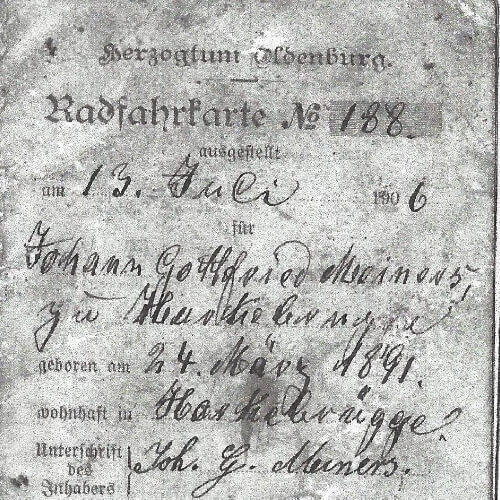 Herzogtum Oldenburg.
Radfahrkarte № 188.
ausgestellt
am 13. Juli 1906
für
Johann Gottfried Meiners,
zu Harkebrügge
geboren am 24. März 1891.
wohnhaft in Harkebrügge.
Unterschrift
des
Inhabers
Joh. G. Meiners.